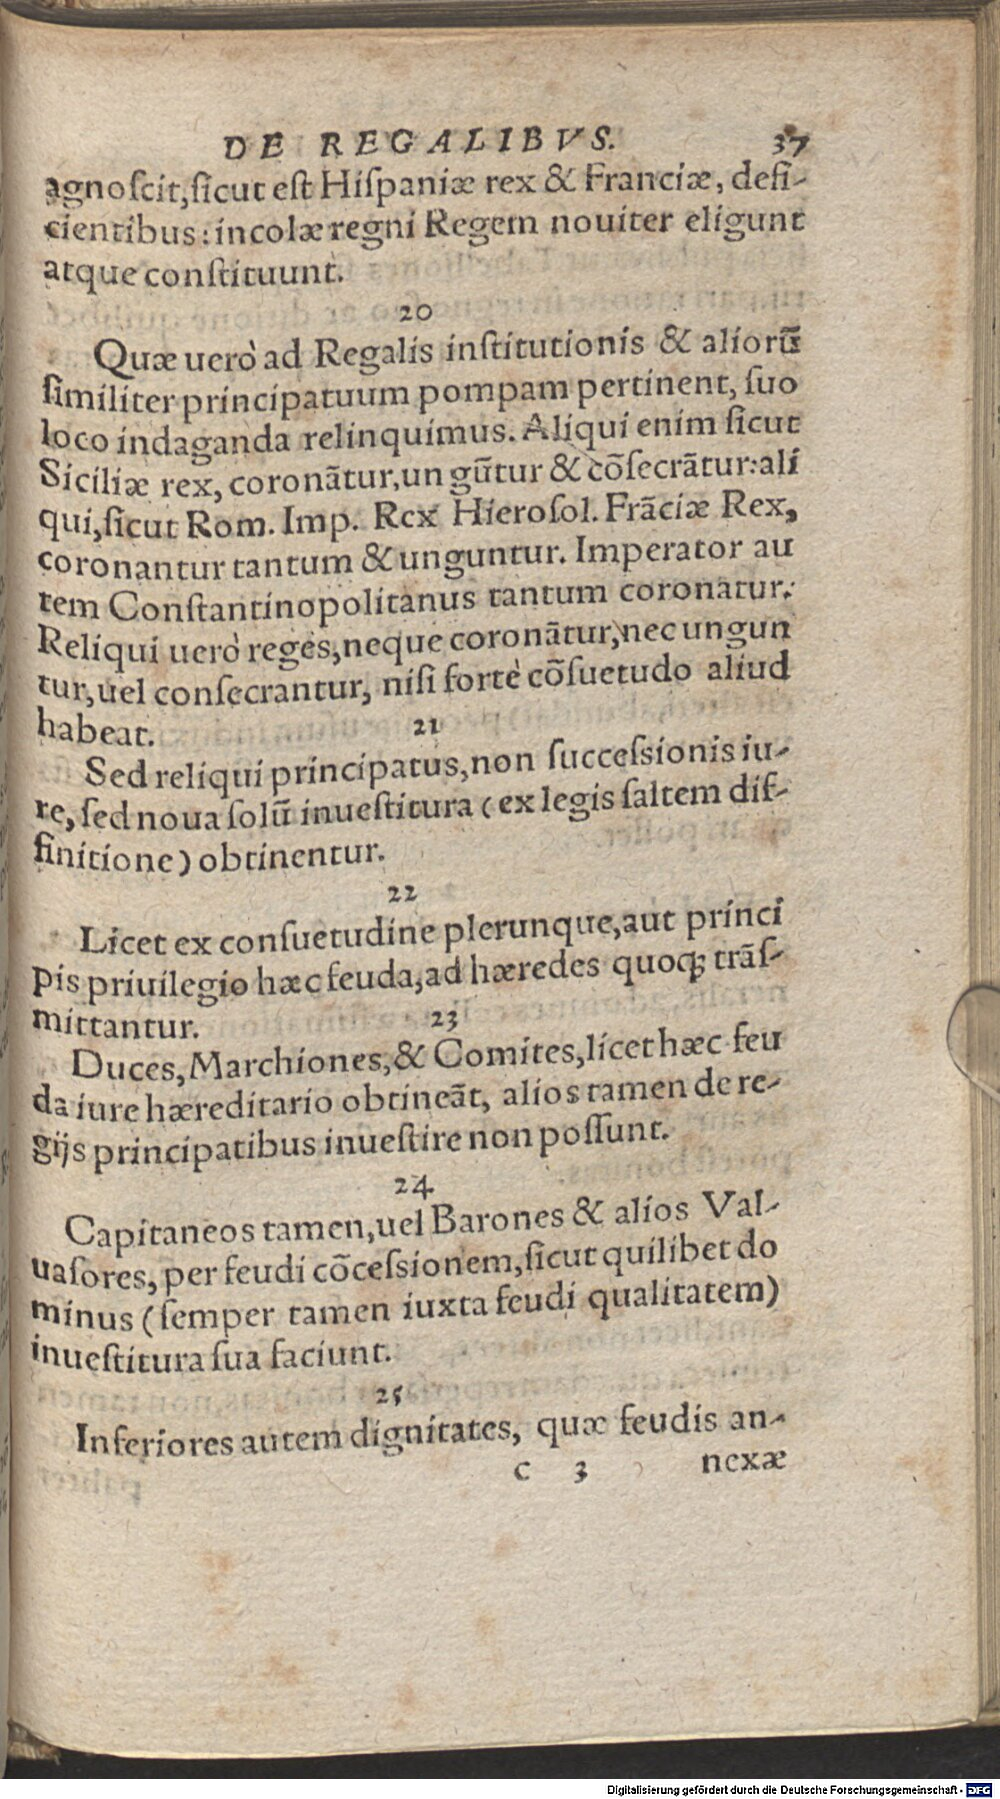 DE REGALIBVS. 37
agnoſcit, ſicut eſt Hiſpaniæ rex & Franciæ, defi-
cientibus: incolæ regni Regem nouiter eligunt
atque conſtituunt.
20
Quæ uerò ad Regalis inſtitutionis & aliorũ
ſimiliter principatuum pompam pertinent, ſuo
loco indaganda relinquimus. Aliqui enim ſicut
Siciliæ rex, coronãtur, ungũtur & cõſecrãtur: ali
qui, ſicut Rom. Imp. Rex Hieroſol. Frãciæ Rex,
coronantur tantum & unguntur. Imperator au
tem Conſtantinopolitanus tantum coronatur:
Reliqui uerò reges, neque coronãtur, nec ungun
tur, uel conſecrantur, niſi fortè cõſuetudo aliud
habeat. 21
Sed reliqui principatus, non ſucceſsionis iu-
re, ſed noua ſolũ inueſtitura (ex legis ſaltem dif-
finitione) obtinentur.
22
Licet ex conſuetudine plerunque, aut princi
pis priuilegio hæc feuda, ad hæredes quoq; trãſ-
mittantur. 23
Duces, Marchiones, & Comites, licet hæc feu
da iure hæreditario obtineãt, alios tamen de re-
gijs principatibus inueſtire non poſſunt.
24
Capitaneos tamen, uel Barones & alios Val-
uaſores, per feudi cõceſsionem, ſicut quilibet do
minus (ſemper tamen iuxta feudi qualitatem)
inueſtitura ſua faciunt.
25
Inferiores autem dignitates, quæ feudis an-
c 3 nexæ
Digitalisierung gefördert durch die Deutsche Forschungsgemeinschaft - DFG